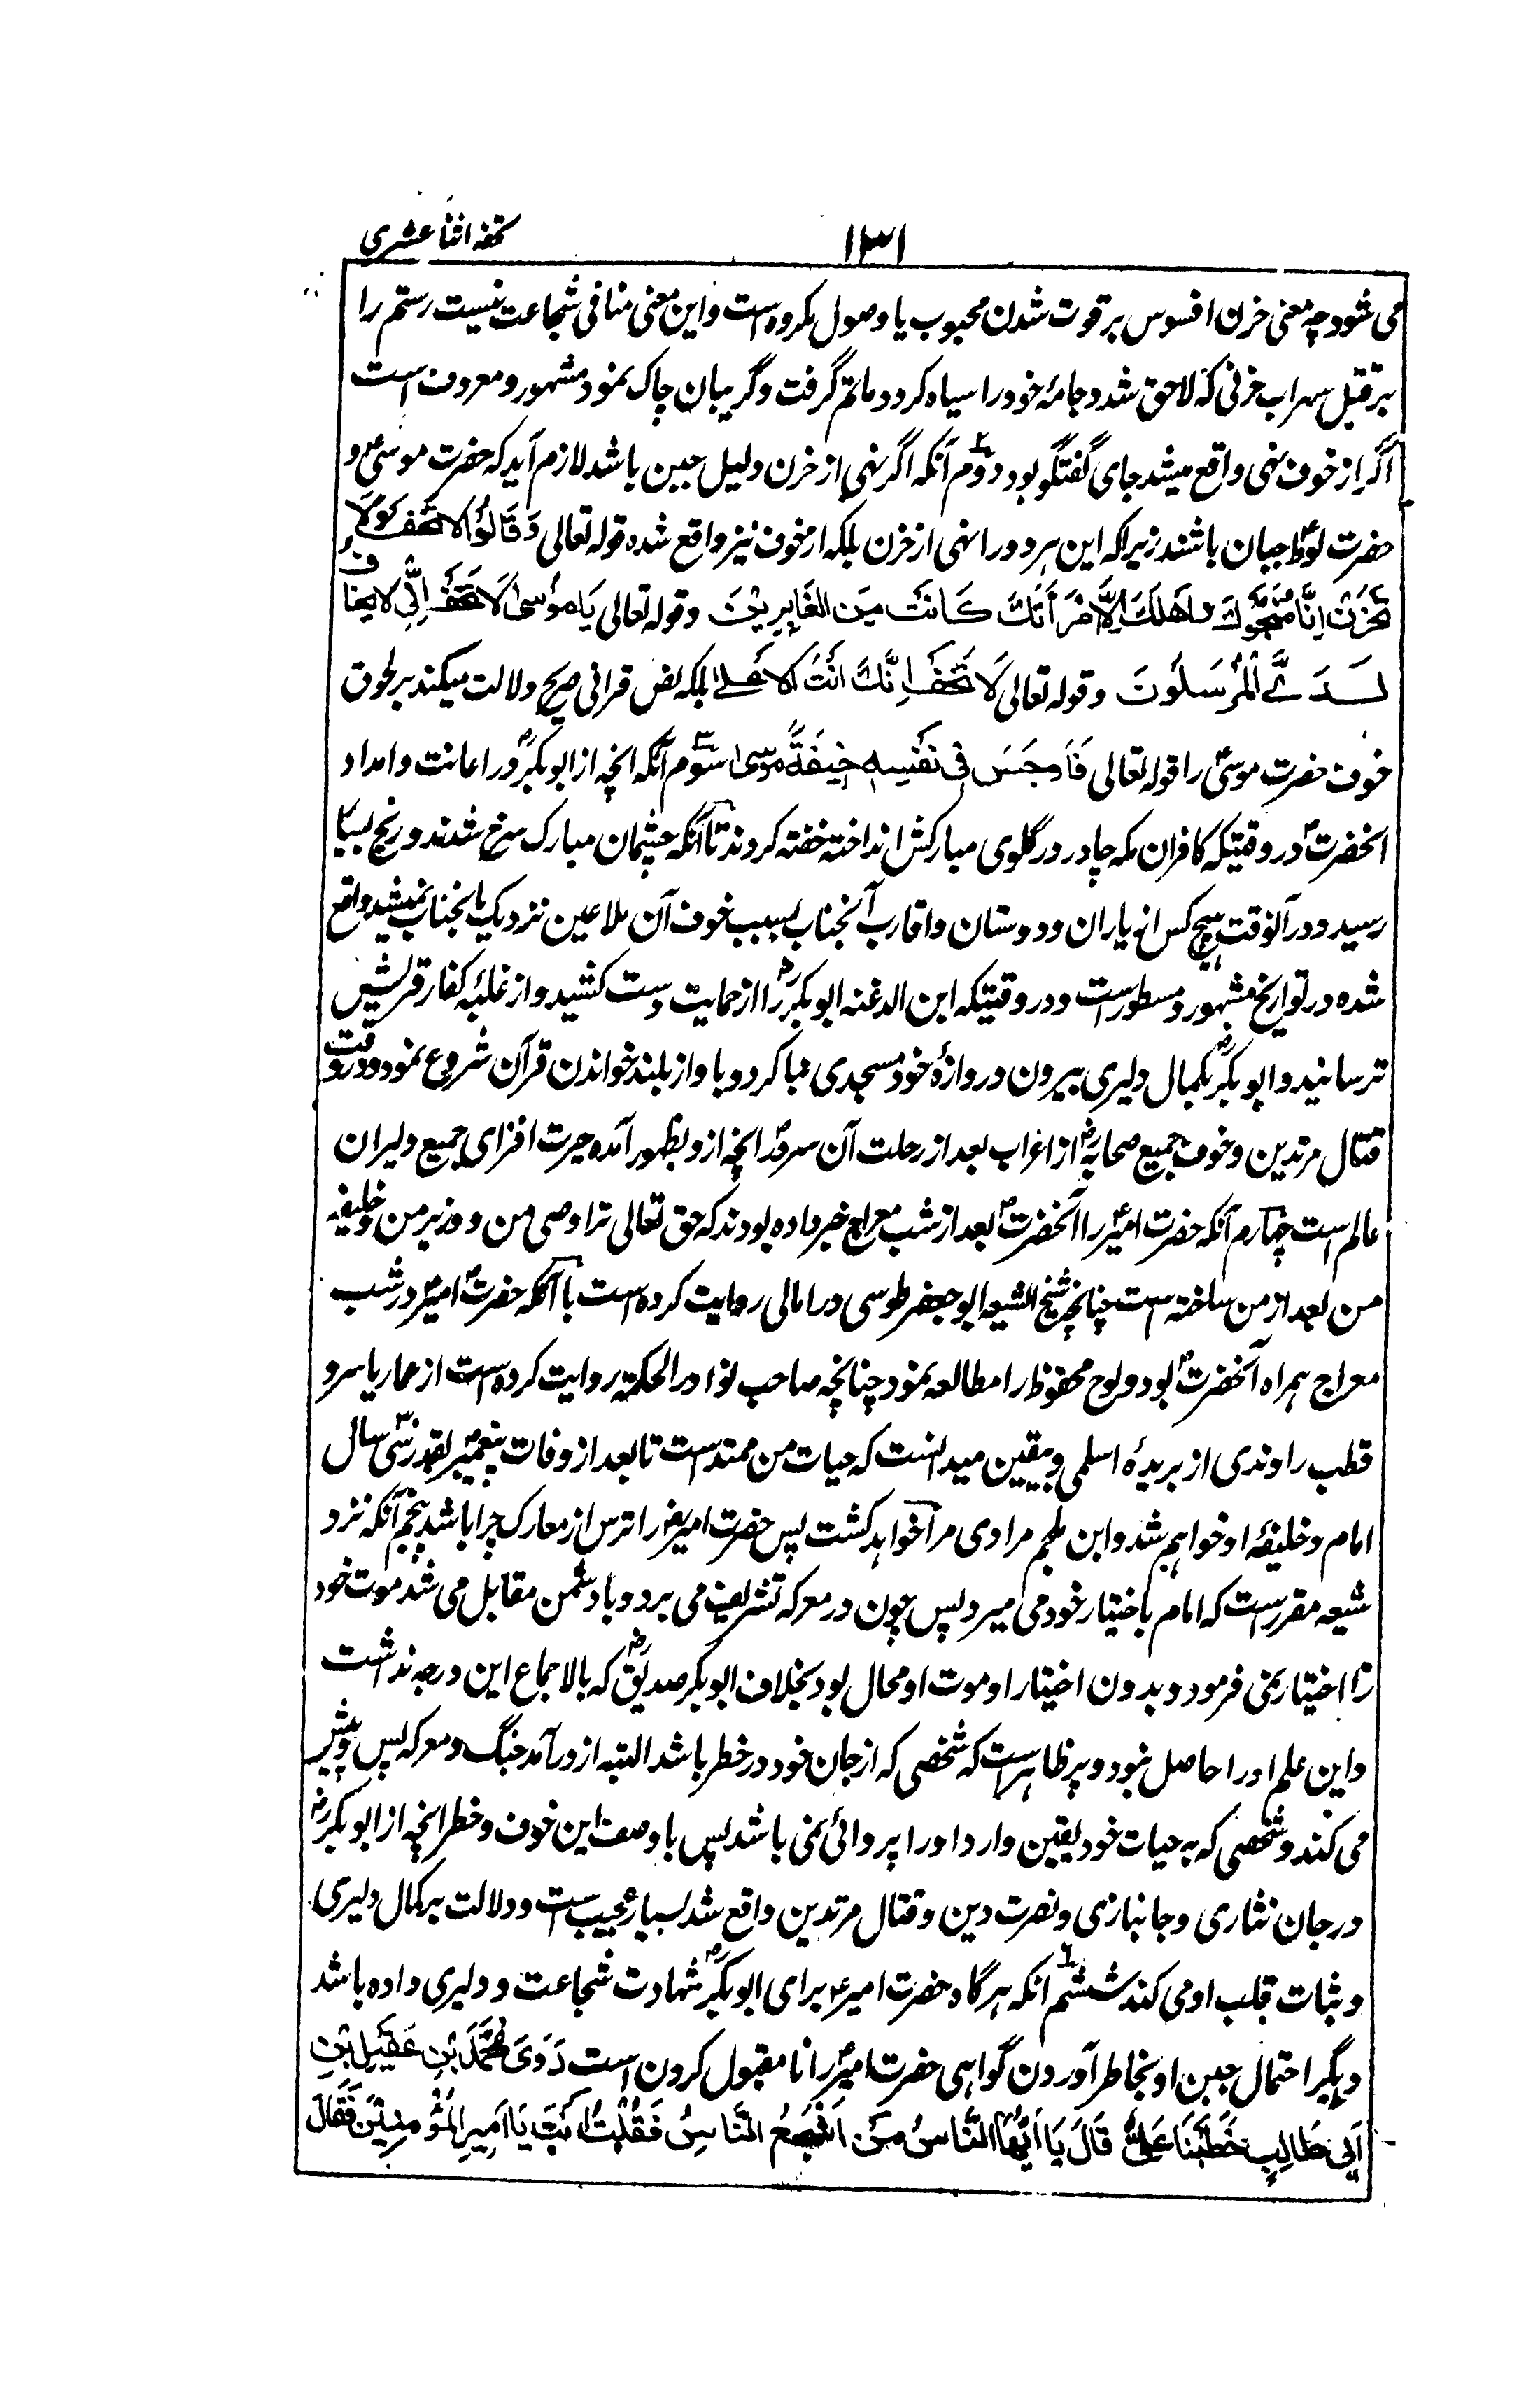 تحفه اثنا عشری
۱۳۱
می شود چه معنی حزن افسوس بر فوت شدن محبوب یا وصول مکروه است و این معنی منافی شجاعت نیست رستم را
بر قتل سهراب حزنی که لاحق شد و جامهٔ خود را سیاه کرد و ماتم گرفت و گریبان چاک نمود مشهور و معروف است
اگر از خوف نهی واقع میشد جای گفتگو بود دوم آنکه اگر نهی از حزن دلیل جبن باشد لازم آید که حضرت موسیٰ و
حضرت لوط جبان باشند زیرا که این هر دو را نهی از حزن بلکه از خوف نیز واقع شده قوله تعالی وَقَالُوْا لَا تَخَفْ وَلَا
تَحْزَنْ اِنَّا مُنَجُّوْكَ وَاَهْلَكَ اِلَّا امْرَأَتَكَ كَانَتْ مِنَ الْغَابِرِيْنَ وقوله تعالی يَا مُوْسٰى لَا تَخَفْ اِنِّيْ لَا يَخَافُ
لَدَيَّ الْمُرْسَلُوْنَ وقوله تعالی لَا تَخَفْ اِنَّكَ اَنْتَ الْاَعْلٰى بلکه نص قرآنی صریح دلالت میکند بر لحوق
خوف حضرت موسیٰ را قوله تعالی فَاَوْجَسَ فِيْ نَفْسِهٖ خِيْفَةً مُّوْسٰى سوم آنکه آنچه از ابوبکرؓ در اعانت و امداد
آنحضرتؐ در وقتیکه کافران مکه چادر در گلوی مبارکش انداخته خفته کردند تا آنکه چشمان مبارک سرخ شدند و رنج بسیار
رسید و در آنوقت هیچ کس از یاران و دوستان و اقارب آنجناب بسبب خوف آن ملاعین نزدیک بآنجناب نمیشد واقع
شده در تواریخ مشهور و مسطور است و در وقتیکه ابن الدغنه ابوبکرؓ را از حمایت دست کشید و از غلبهٔ کفار قریش
ترسانید و ابوبکرؓ بکمال دلیری بیرون دروازهٔ خود مسجدی بنا کرد و باواز بلند خواندن قرآن شروع نمود و در وقت
قتال مرتدین و خوف جمیع صحابهؓ از اعراب بعد از رحلت آن سرورؐ آنچه از و بظهور آمده حیرت افزای جمیع دلیران
عالم است چهارم آنکه حضرت امیرؑ را آنحضرتؐ بعد از شب معراج خبر داده بودند که حق تعالی ترا وصی من و وزیر من و خلیفه
من بعد از من ساخته است چنانچه شیخ الشیعه ابو جعفر طوسی در امالی روایت کرده است با آنکه حضرت امیرؑ در شب
معراج همراه آنحضرتؐ بود و لوح محفوظ را مطالعه نمود چنانچه صاحب نوادر الحکمة روایت کرده است از عمار یاسر و
قطب راوندی از بریدهٔ اسلمی و بیقین میدانست که حیات من ممتد است تا بعد از وفات پیغمبرؐ بقدر سی سال
امام و خلیفهٔ او خواهم شد و ابن ملجم مرادی مرا خواهد کشت پس حضرت امیر را ترس از معارک چرا باشد پنجم آنکه نزد
شیعه مقرر است که امام باختیار خود می میرد پس چون در معرکه تشریف می برد و با دشمن مقابل می شد موت خود
را اختیار نمی فرمود و بدون اختیار او موت او محال بود بخلاف ابوبکر صدیقؓ که بالاجماع این درجه نداشت
و این علم او را حاصل نبود و پر ظاهر است که شخصی که از جان خود در خطر باشد البته از در آمد جنگ و معرکه پس و پیش
می کند و شخصی که به حیات خود یقین دارد او را پروائی نمی باشد پس با وصف این خوف و خطر آنچه از ابوبکرؓ
در جان نثاری و جانبازی و نصرت دین و قتال مرتدین واقع شد بسیار عجیب است و دلالت بر کمال دلیری
و ثبات قلب او می کند ششم آنکه هرگاه حضرت امیرؑ برای ابوبکرؓ شهادت شجاعت و دلیری داده باشد
دیگر احتمال جبن او بخاطر آوردن گواهی حضرت امیرؑ را نامقبول کردن است رَوٰى مُحَمَّدُ بْنُ عَقِيْلِ بْنِ
اَبِيْ طَالِبٍ خَطَبَنَا عَلِيٌّ قَالَ يَا اَيُّهَا النَّاسُ مَنْ اَشْجَعُ النَّاسِ فَقُلْتُ اَنْتَ يَا اَمِيْرَ الْمُؤْمِنِيْنَ فَقَالَ